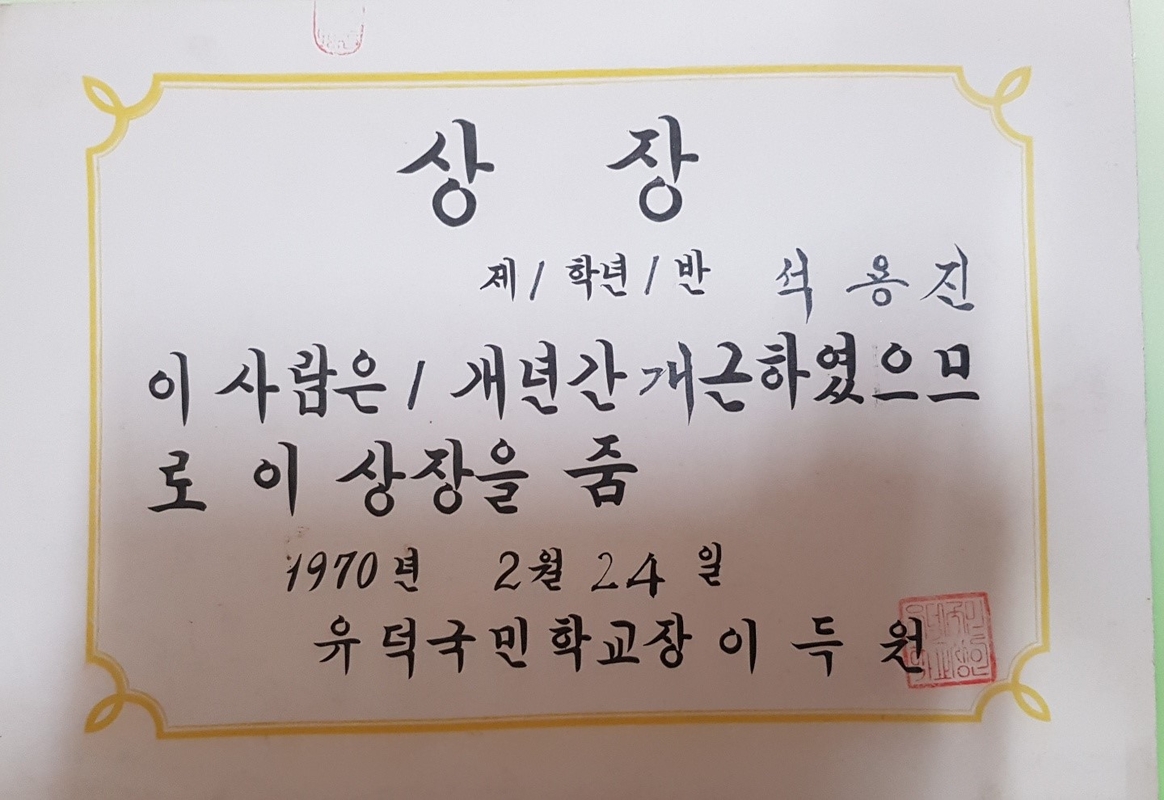 상 장
제 1 학년 1 반 석 용 진
이 사람은 1 개년간 개근하였으므
로 이 상장을 줌
1970년 2월 24일
유덕국민학교장 이 득 원